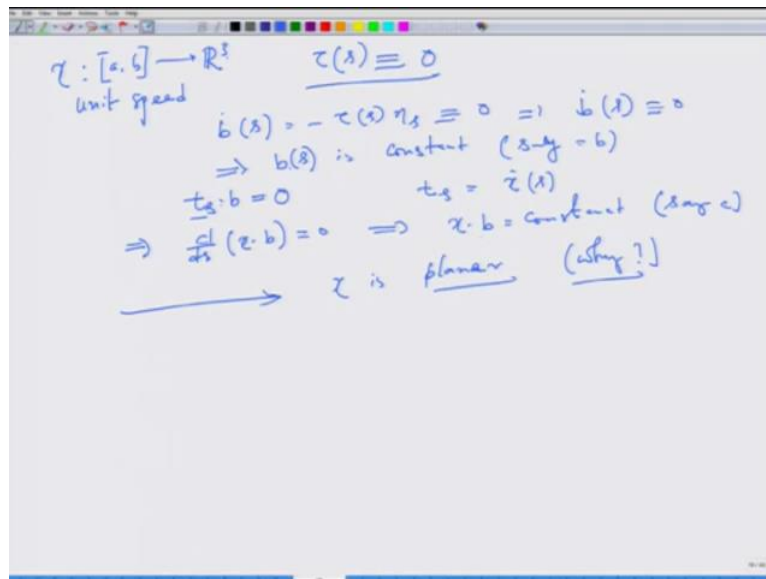 γ : [a, b] → ℝ³ τ(s) ≡ 0
unit speed
ḃ(s) = - τ(s) n_s ≡ 0 => ḃ(s) ≡ 0
=> b(s) is constant (say = b)
t_s · b = 0 t_s = γ̇(s)
=> d/ds (γ · b) = 0 => γ · b = constant (say c)
γ is planar (why?)